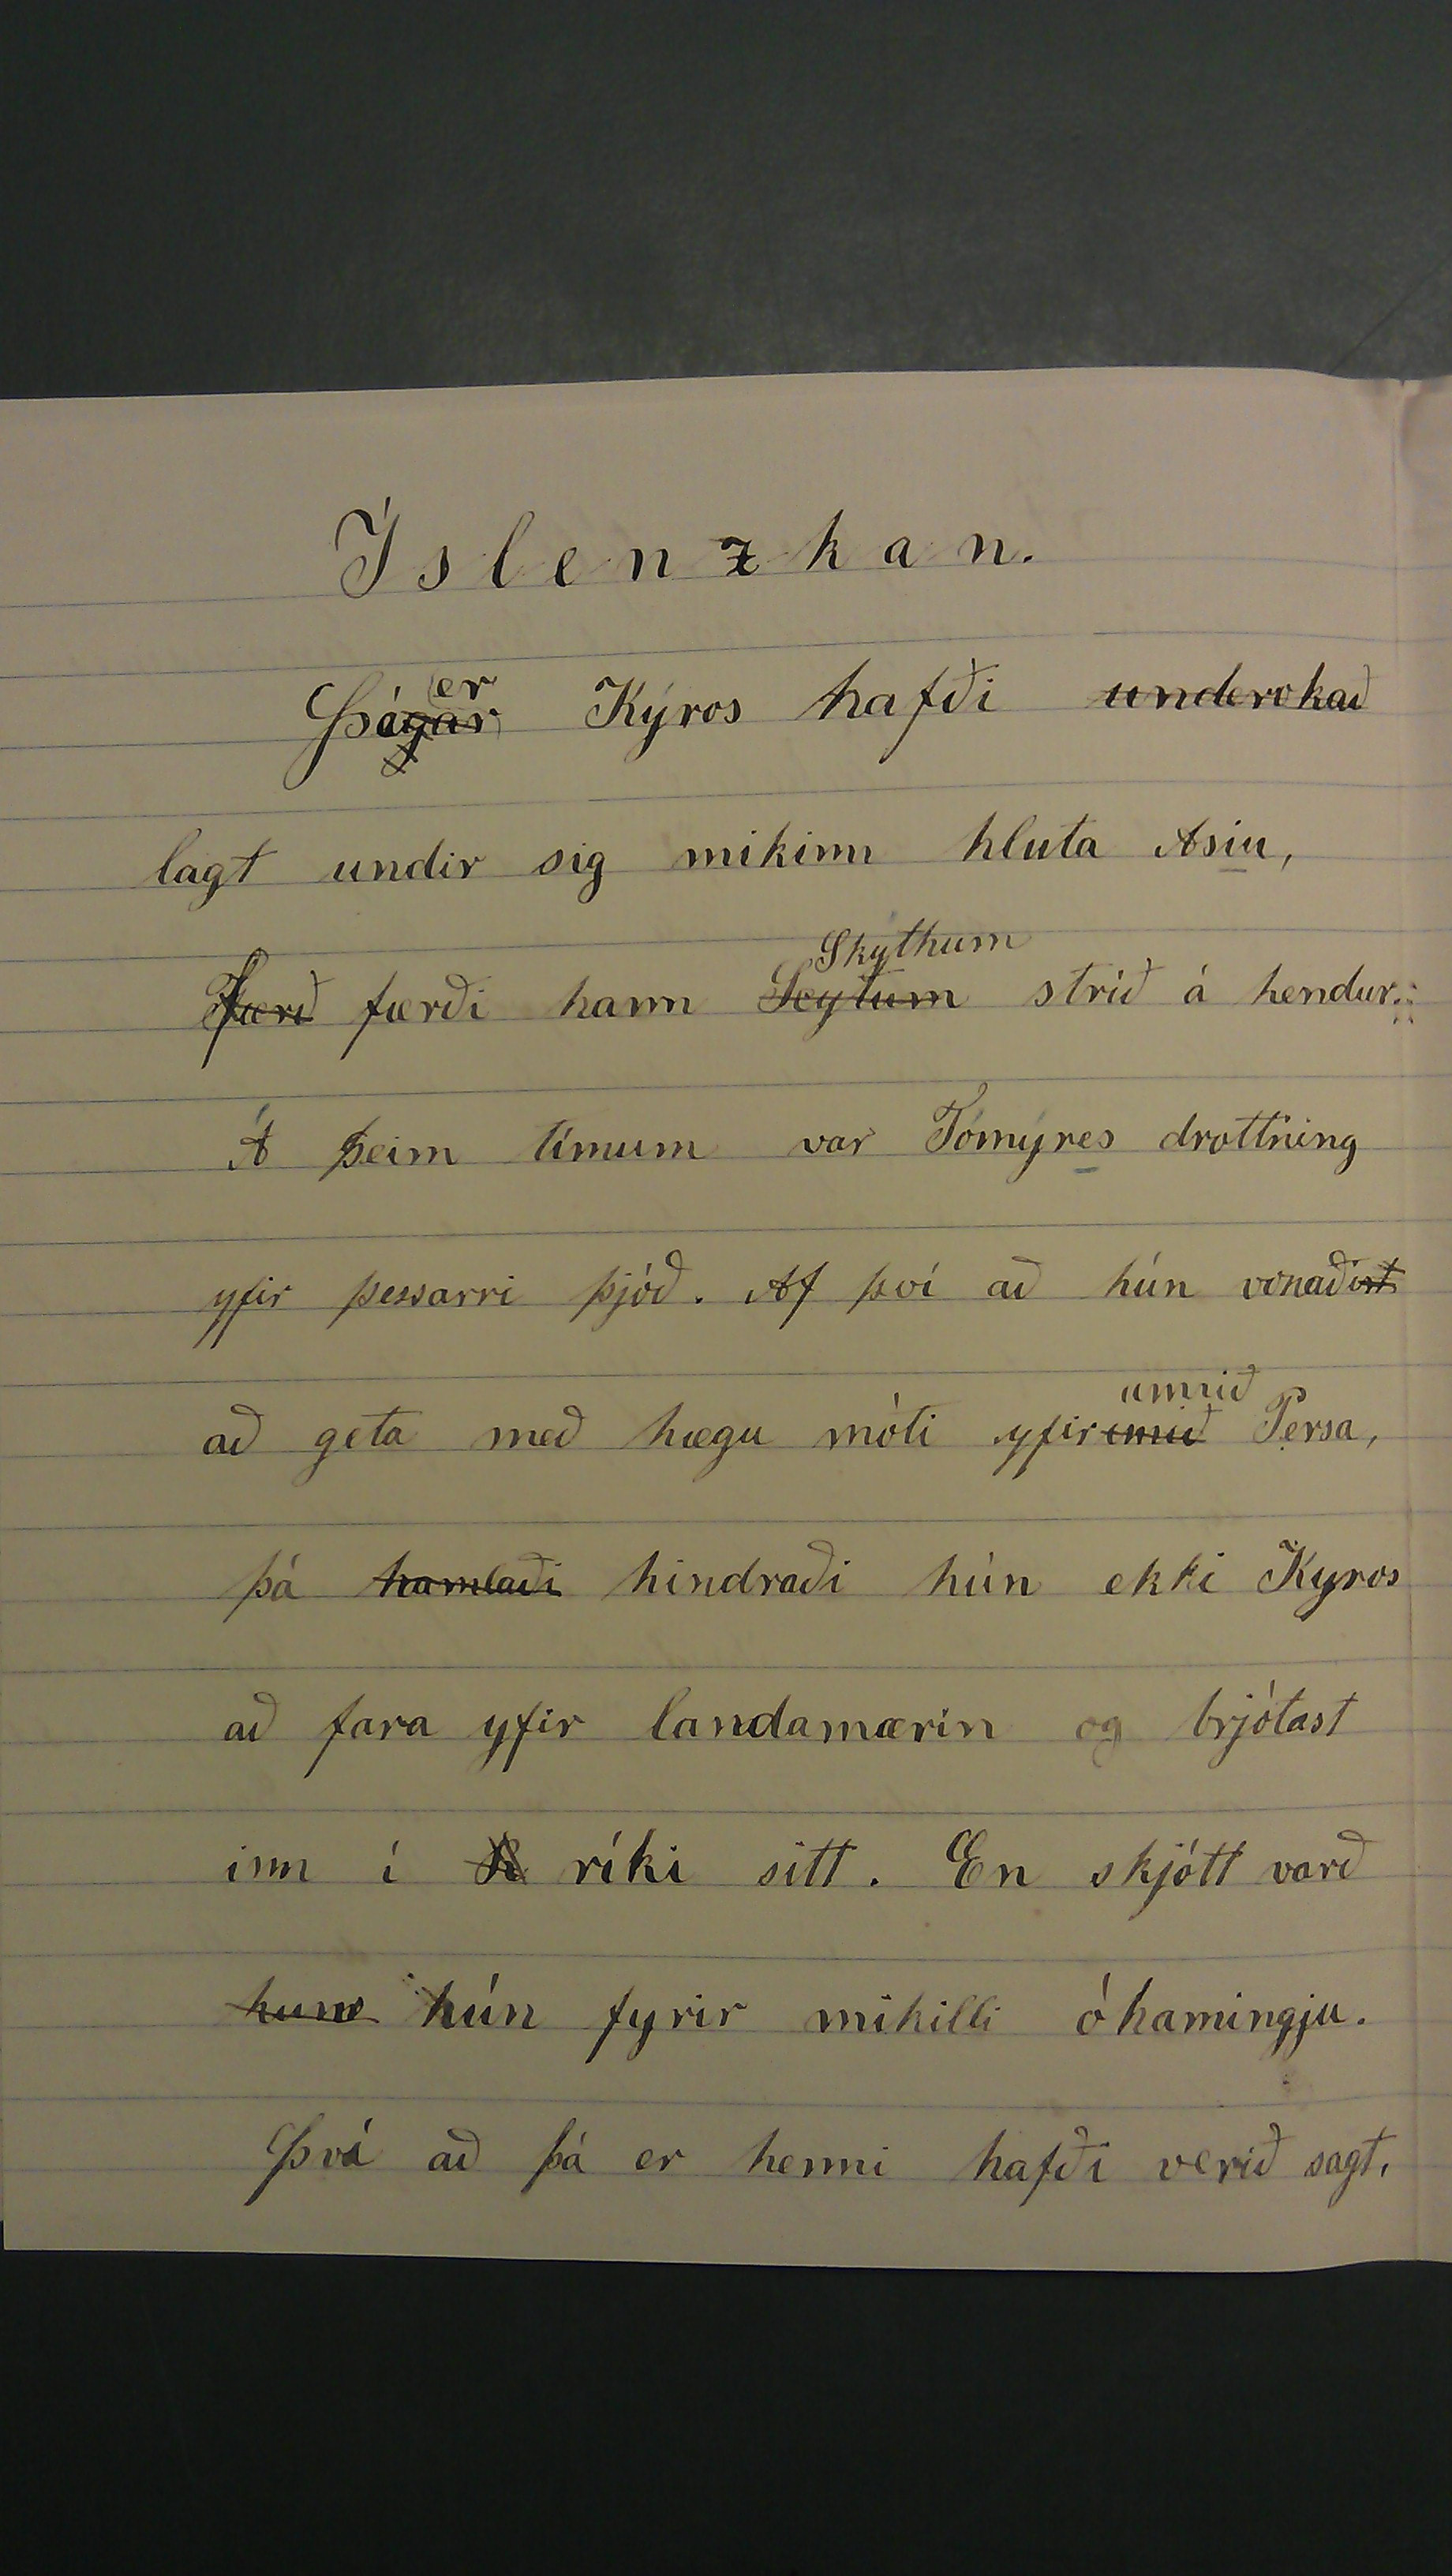 Íslenzkan.
Þá er Kýros hafði underokað
lagt undir sig mikinn hluta Asiu,
Færð færði hann Scytum Skýthum stríð á hendur.
Á þeim tímum var Tómýres drottning
yfir þessarri þjóð. Af því að hún vonaðist
að geta með hægu móti yfirunnið Persa,
þá hamlaði hindraði hún ekki Kyros
að fara yfir landamærin og brjótast
inn í R ríki sitt. En skjótt varð
hún fyrir mikilli óhamingju.
Því að þá er henni hafði verið sagt,